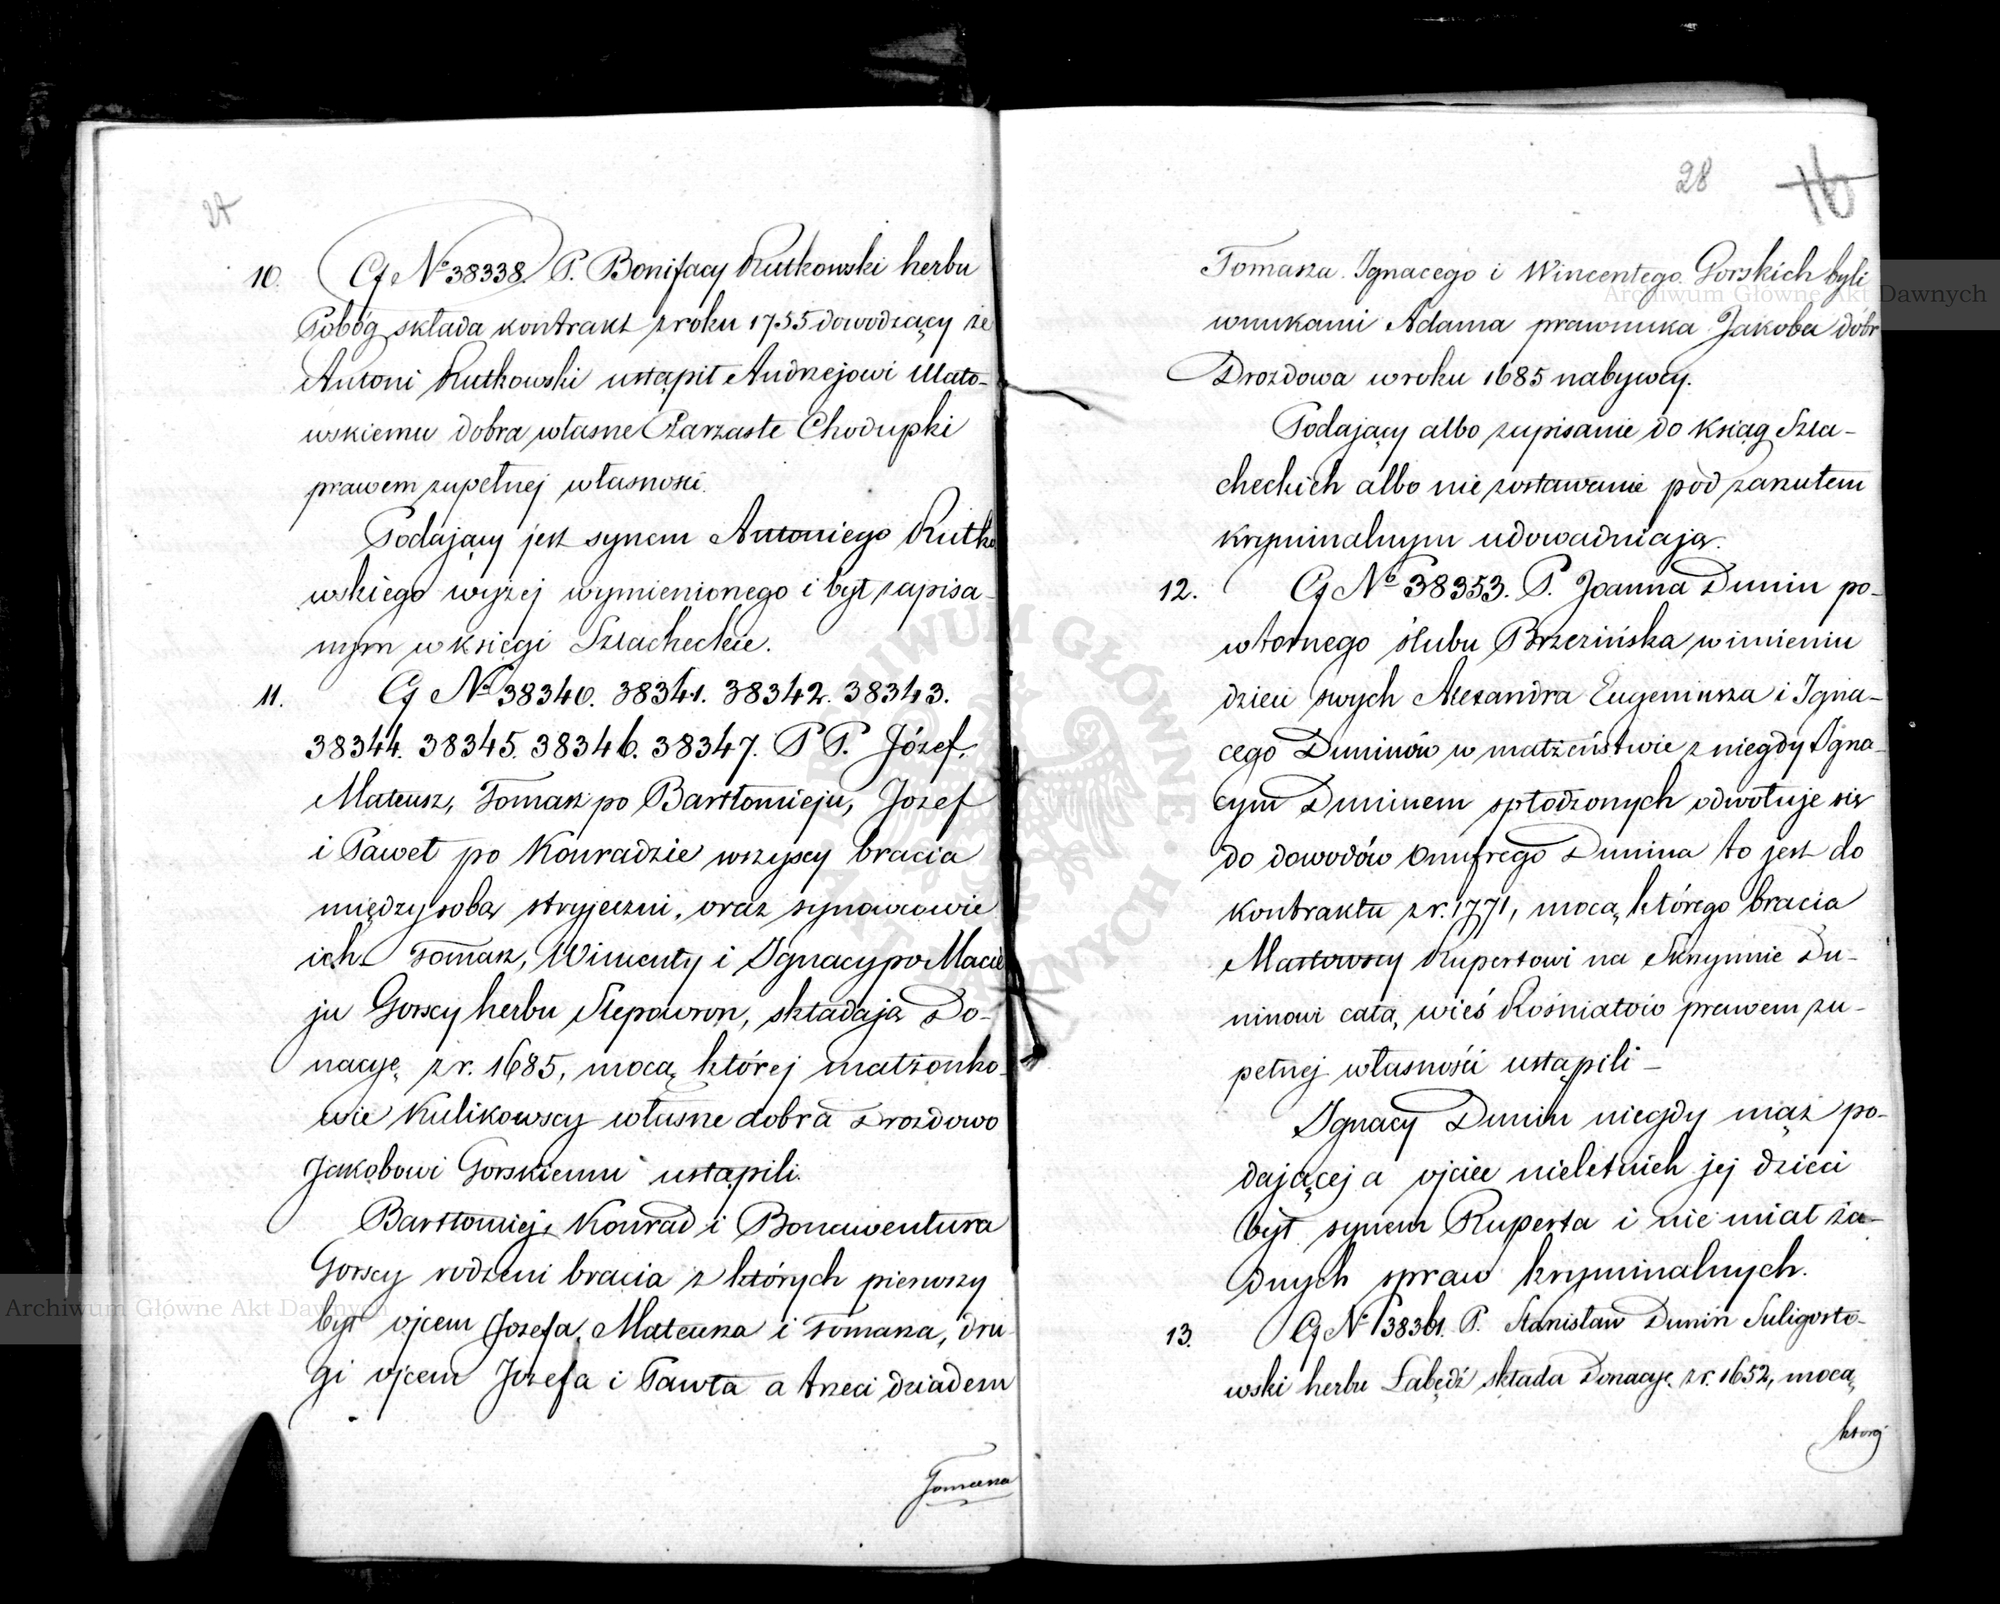 27
10. Cf No 38338. P. Bonifacy Rutkowski herbu
Pobóg składa kontrakt z roku 1755 dowodzący że
Antoni Rutkowski ustąpił Andrzejowi Mato-
wskiemu dobra własne Czarzaste Chodupki
prawem zupełnej własności.
Podający jest synem Antoniego Rutko
wskiego wyżej wymienionego i był zapisa-
nym w księgi Szlacheckie.
11. Cf No 38340. 38341. 38342. 38343.
38344. 38345. 38346. 38347. P P. Józef,
Mateusz, Tomasz po Bartłomieju, Jozef
i Paweł po Konradzie wszyscy bracia
między sobą stryjeczni, oraz synowcowie
ich Tomasz, Wincenty i Ignacy po Macie
ju Gorscy herbu Slepowron, składają Do-
nacyę z r. 1685, mocą której małżonko-
wie Kulikowscy własne dobra Drozdowo
Jakobowi Gorskiemu ustąpili.
Bartłomiej, Konrad i Bonawentura
Gorscy rodzeni bracia z których pierwszy
był ojcem Jozefa, Mateusza i Tomasza, dru-
gi ojcem Jozefa i Pawła a trzeci dziadem
Tomasza
28 16
Tomasza Ignacego i Wincentego Gorskich byli
wnukami Adama prawnuka Jakoba dobr
Drozdowa w roku 1685 nabywcy.
Podający albo zapisanie do ksiąg Szla-
checkich albo nie zostawanie pod zarzutem
kryminalnym udowadniają.
12. Cf No 38353. P. Joanna Dunin po-
wtornego ślubu Brzezińska w imieniu
dzieci swych Alexandra Eugeniusza i Igna-
cego Duninów w małżeństwie z niegdy Igna-
cym Duninem spłodzonych odwołuje się
do dowodów Onufrego Dunina to jest do
kontraktu z r. 1771, mocą którego bracia
Masłowscy Rupertowi na Skrzynnie Du-
ninowi całą wieś Rośniatów prawem zu-
pełnej własności ustąpili –
Ignacy Dunin niegdy mąż po-
dającej a ojciec nieletnich jej dzieci
był synem Ruperta i nie miał ża-
dnych spraw kryminalnych.
13. Cf No 38361. P. Stanisław Dunin Suligosto-
wski herbu Łabędź składa Donacyę z r. 1652, mocą
ktorej
Archiwum Główne Akt Dawnych
Archiwum Główne Akt Dawnych
ARCHIWUM GŁÓWNE AKT DAWNYCH